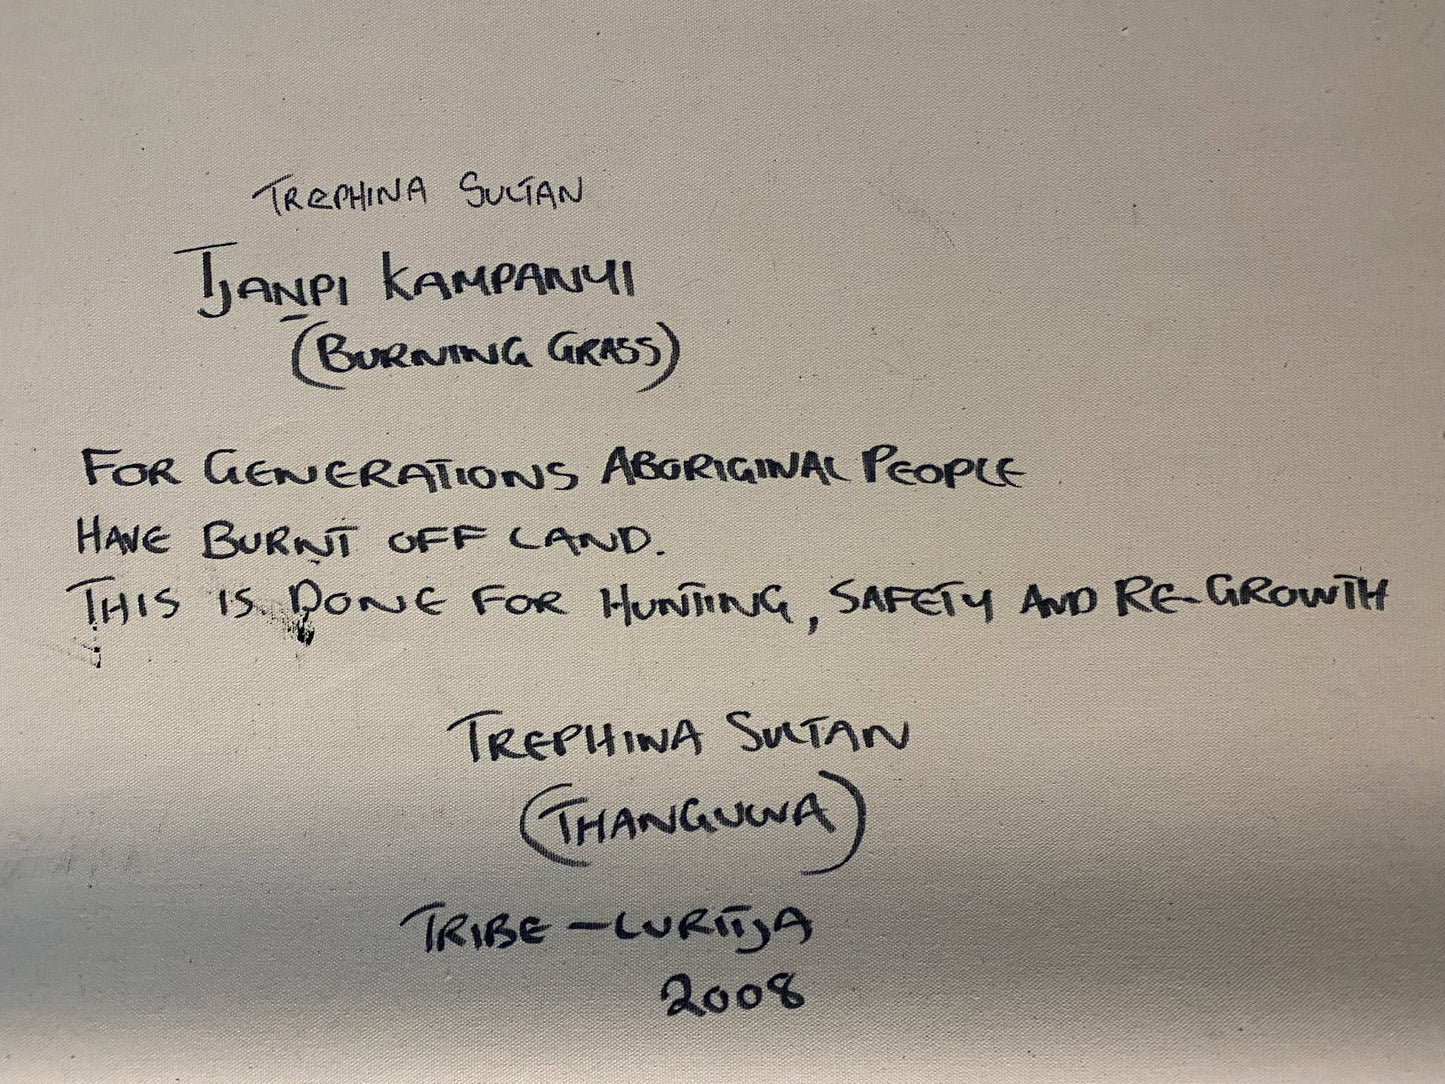 TREPHINA SULTAN
TJANPI KAMPANYI
(BURNING GRASS)
FOR GENERATIONS ABORIGINAL PEOPLE
HAVE BURNT OFF LAND.
THIS IS DONE FOR HUNTING, SAFETY AND RE-GROWTH
TREPHINA SULTAN
(THANGUWA)
TRIBE - LURITJA
2008